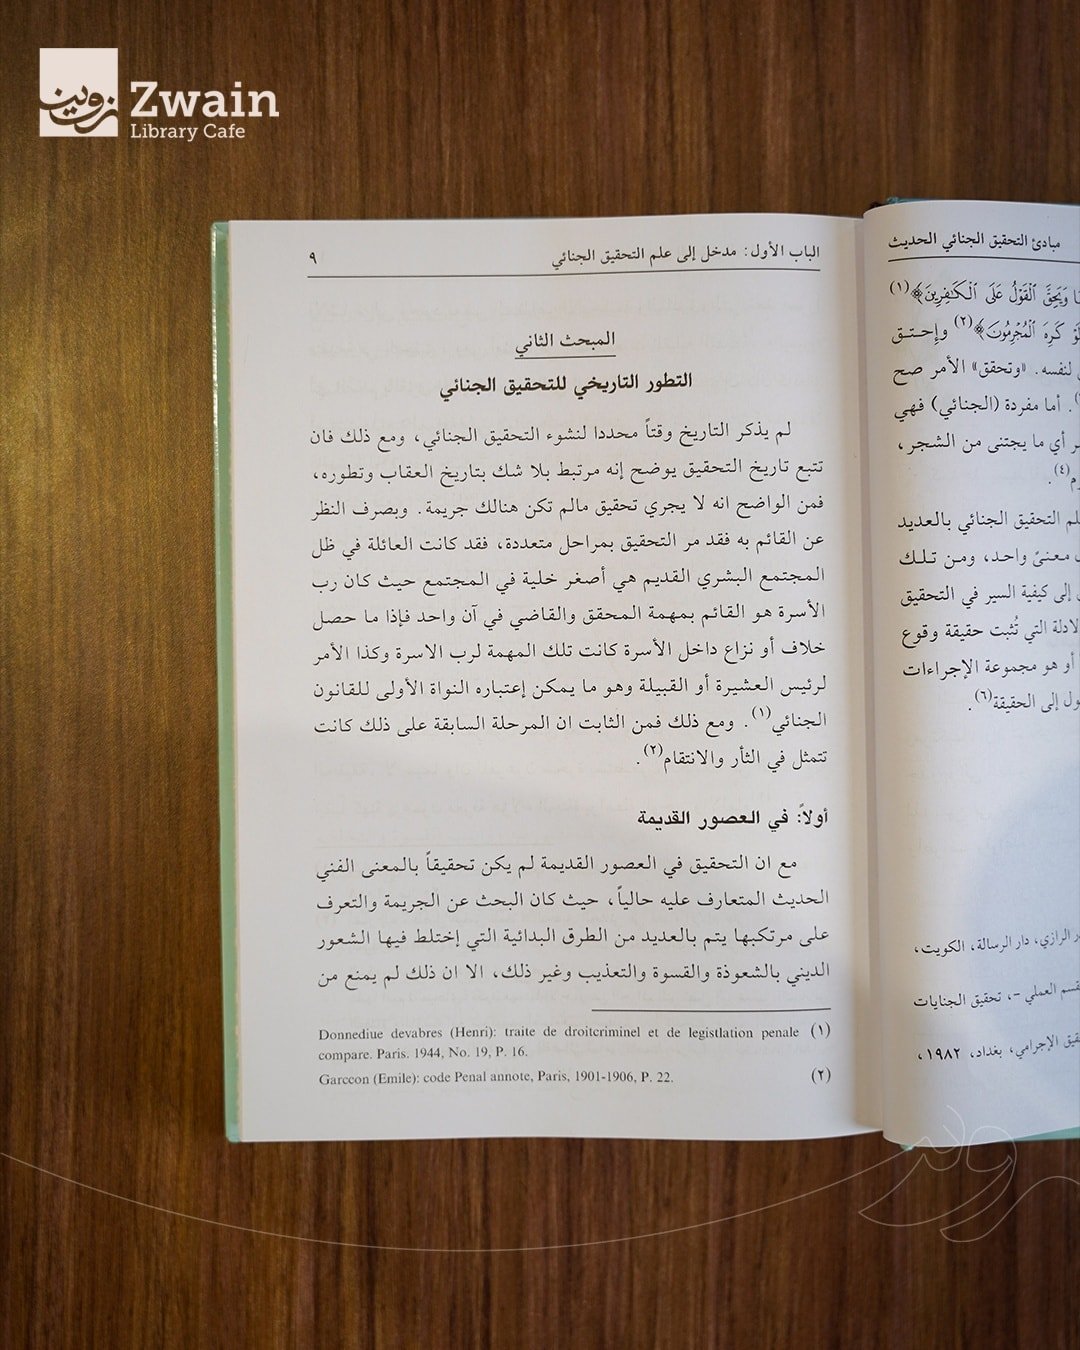 زوين
Zwain
Library Cafe
مبادئ التحقيق الجنائي الحديث
وَيَحِقَّ ٱلْقَوْلُ عَلَى ٱلْكَٰفِرِينَ﴾(١)
كَرِهَ ٱلْمُجْرِمُونَ﴾(٢) وإحتـق
لنفسه. «وتحقق» الأمر صح
. أما مفردة (الجنائي) فهي
أي ما يجتنى من الشجر،
(٤).
التحقيق الجنائي بالعديد
معنىً واحد، ومن تـلـك
إلى كيفية السير في التحقيق
التي تُثبت حقيقة وقوع
أو هو مجموعة الإجراءات
إلى الحقيقة(٦).
الرازي، دار الرسالة، الكويت،
العملي -، تحقيق الجنايات
الإجرامي، بغداد، ١٩٨٢،
الباب الأول: مدخل إلى علم التحقيق الجنائي
٩
المبحث الثاني
التطور التاريخي للتحقيق الجنائي
لم يذكر التاريخ وقتاً محددا لنشوء التحقيق الجنائي، ومع ذلك فان
تتبع تاريخ التحقيق يوضح إنه مرتبط بلا شك بتاريخ العقاب وتطوره،
فمن الواضح انه لا يجري تحقيق مالم تكن هنالك جريمة. وبصرف النظر
عن القائم به فقد مر التحقيق بمراحل متعددة، فقد كانت العائلة في ظل
المجتمع البشري القديم هي أصغر خلية في المجتمع حيث كان رب
الأسرة هو القائم بمهمة المحقق والقاضي في آن واحد فإذا ما حصل
خلاف أو نزاع داخل الأسرة كانت تلك المهمة لرب الاسرة وكذا الأمر
لرئيس العشيرة أو القبيلة وهو ما يمكن إعتباره النواة الأولى للقانون
الجنائي(١). ومع ذلك فمن الثابت ان المرحلة السابقة على ذلك كانت
تتمثل في الثأر والانتقام(٢).
أولاً: في العصور القديمة
مع ان التحقيق في العصور القديمة لم يكن تحقيقاً بالمعنى الفني
الحديث المتعارف عليه حالياً، حيث كان البحث عن الجريمة والتعرف
على مرتكبها يتم بالعديد من الطرق البدائية التي إختلط فيها الشعور
الديني بالشعوذة والقسوة والتعذيب وغير ذلك، الا ان ذلك لم يمنع من
(١) Donnediue devabres (Henri): traite de droitcriminel et de legistlation penale
compare. Paris. 1944, No. 19, P. 16.
(٢) Garccon (Emile): code Penal annote, Paris, 1901-1906, P. 22.